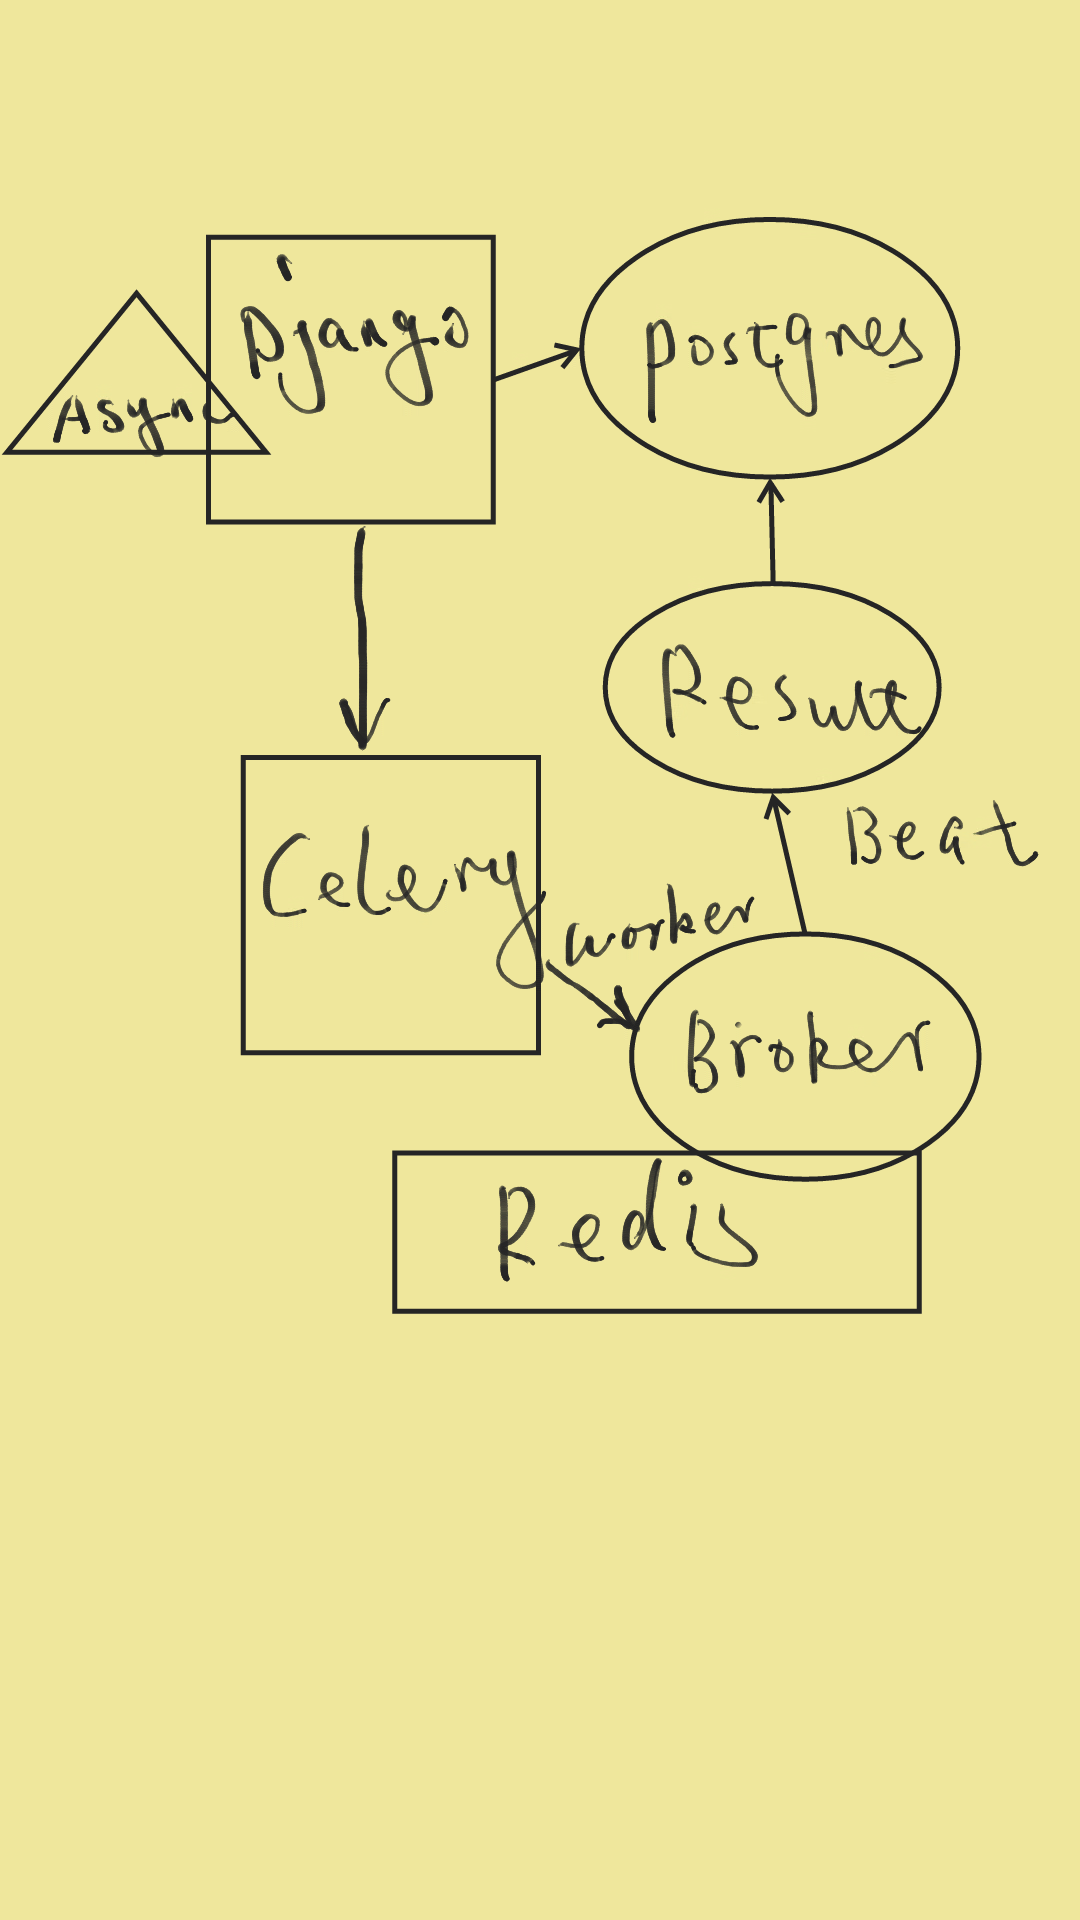 Django
Async
postgres
Result
Beat
Celery
worker
Broker
Redis